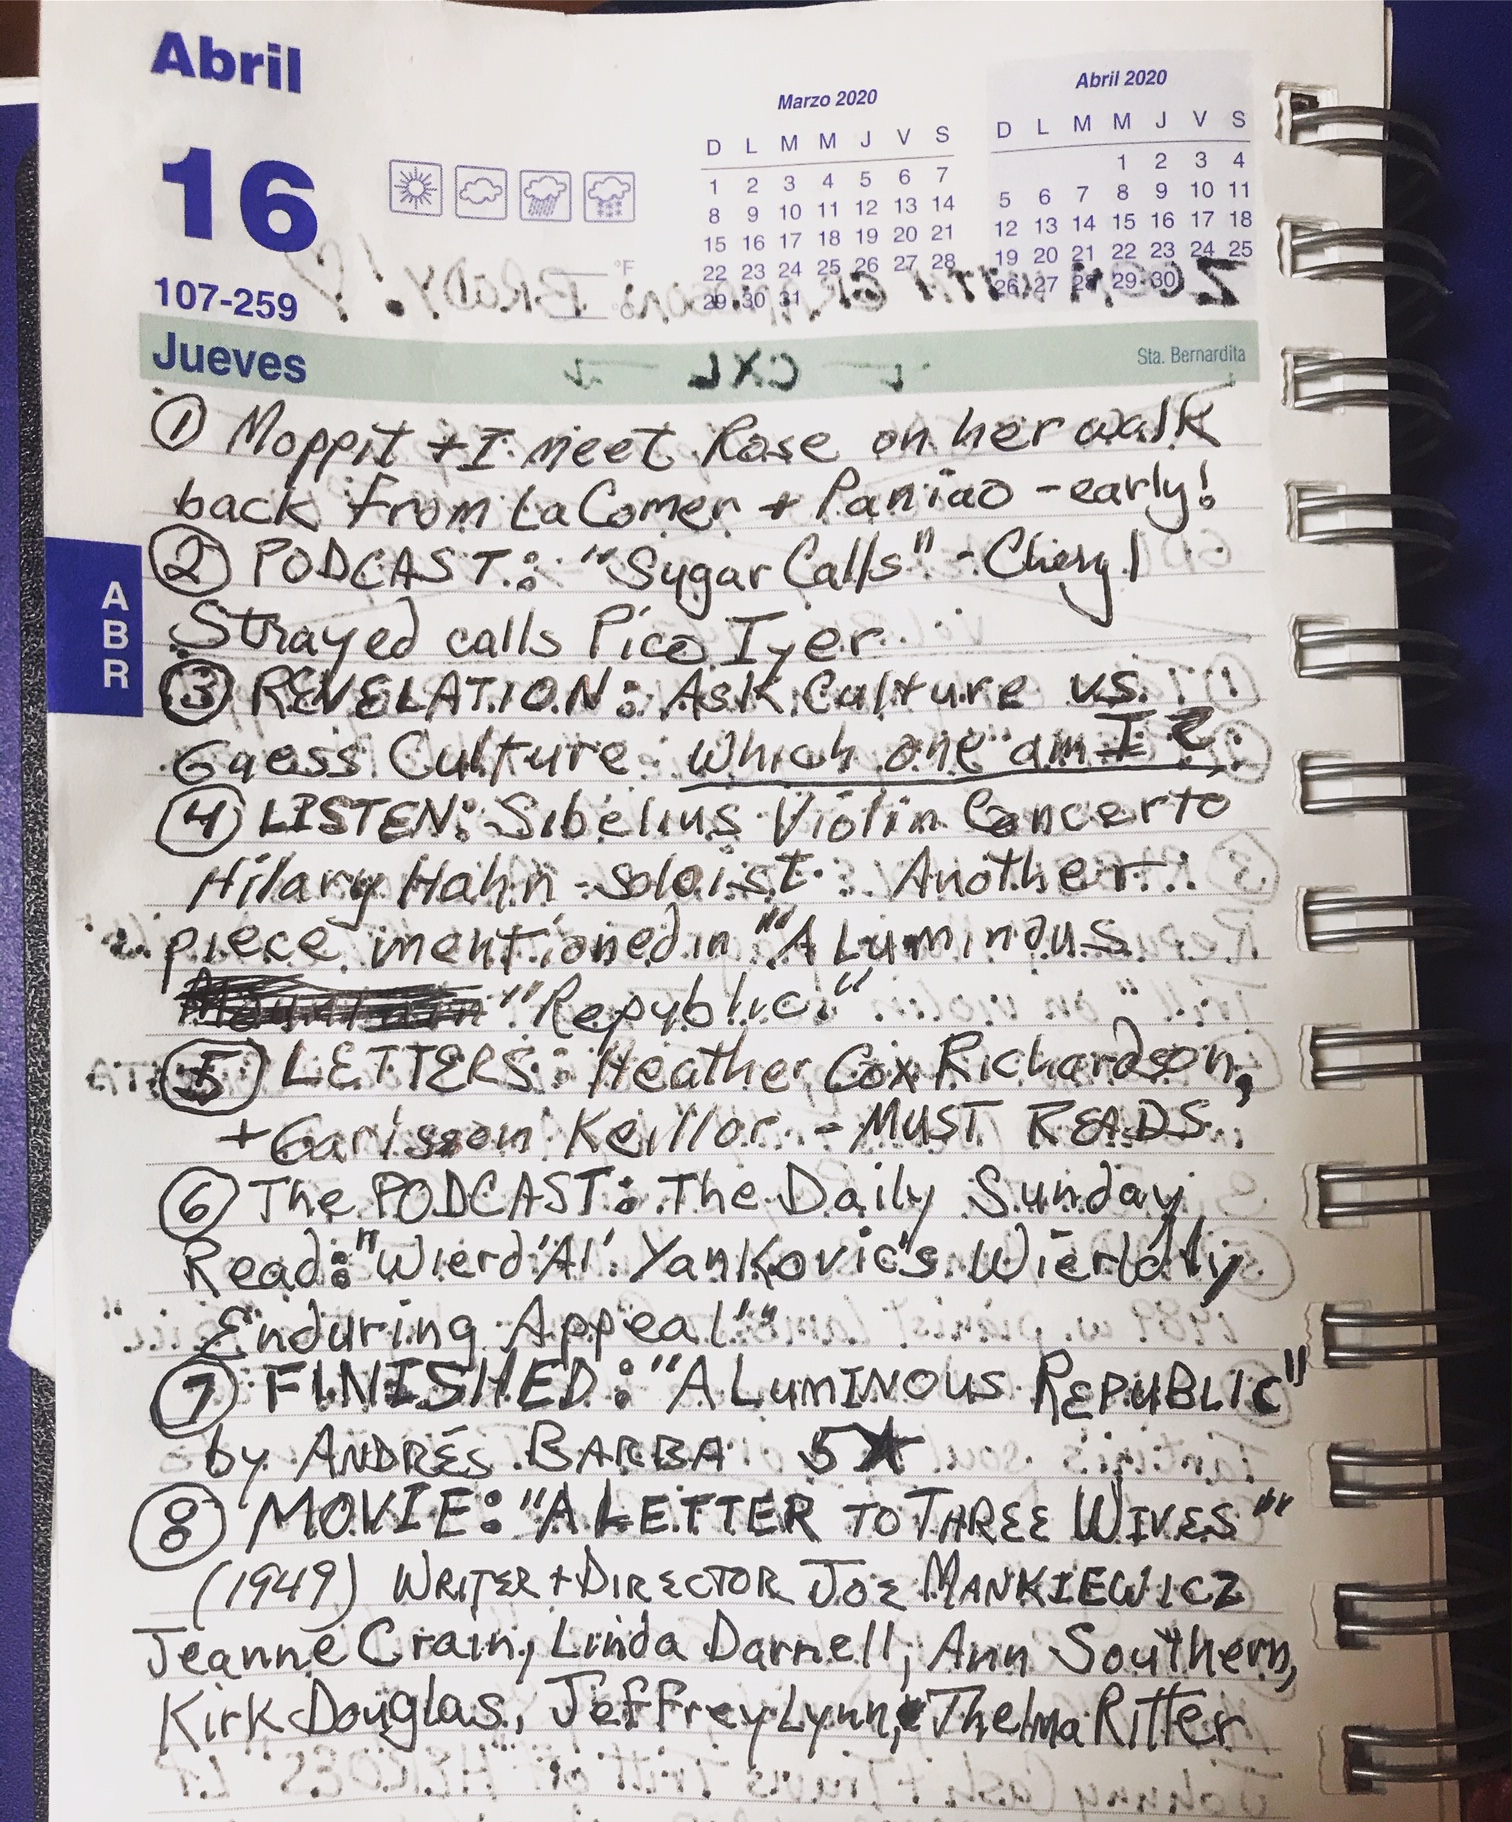 Abril
16
107-259
Marzo 2020
D L M M J V S
1 2 3 4 5 6 7
8 9 10 11 12 13 14
15 16 17 18 19 20 21
22 23 24 25 26 27 28
29 30 31
Abril 2020
D L M M J V S
1 2 3 4
5 6 7 8 9 10 11
12 13 14 15 16 17 18
19 20 21 22 23 24 25
26 27 28 29 30
°F
°C
Jueves
Sta. Bernardita
A
B
R
① Moppit + I meet Rose on her walk
back from La Comer + Paniao - early!
② PODCAST: "Sugar Calls" - Cheryl
Strayed calls Pico Iyer
③ REVELATION: Ask Culture vs.
Guess Culture: Which one am I?
④ LISTEN: Sibelius Violin Concerto
Hilary Hahn - soloist. Another
piece mentioned in "A Luminous
"Republic."
⑤ LETTERS: Heather Cox Richardson,
+ Garisson Keillor - MUST READS.
⑥ The PODCAST: The Daily Sunday
Read: "Wierd 'Al' Yankovic's Wierdly
Enduring Appeal"
⑦ FINISHED: "A LUMINOUS REPUBLIC"
by ANDRÉS BARBA 5★
⑧ MOVIE: "A LETTER TO THREE WIVES"
(1949) WRITER + DIRECTOR JOE MANKIEWICZ
Jeanne Crain, Linda Darnell, Ann Southern,
Kirk Douglas, Jeffrey Lynn, Thelma Ritter